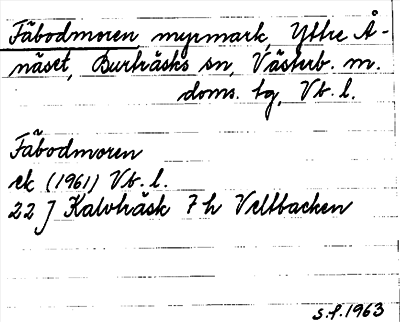 Fäbodmoren myrmark, Yttre Å-
näset, Burträsks sn, Västerb. m.
doms. tg, Vb. l.
Fäbodmoren
ek (1961) Vb. l.
22 J Kalvträsk 7 h Veltbacken
s.f. 1963